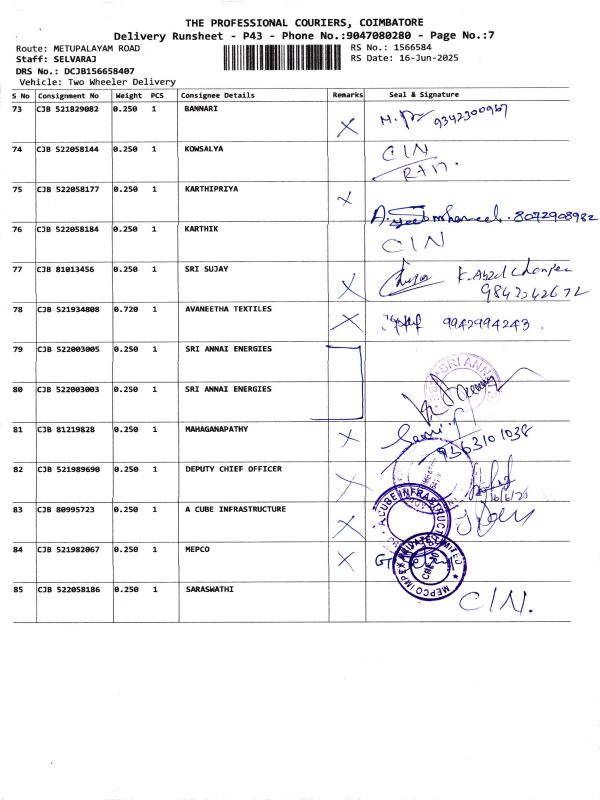 THE PROFESSIONAL COURIERS, COIMBATORE
Delivery Runsheet - P43 - Phone No.:9047080280 - Page No.:7
Route: METUPALAYAM ROAD RS No.: 1566584
Staff: SELVARAJ RS Date: 16-Jun-2025
DRS No.: DCJB156658407
Vehicle: Two Wheeler Delivery
S No Consignment No Weight PCS Consignee Details Remarks Seal & Signature
73 CJB 521829082 0.250 1 BANNARI X 9342300967
74 CJB 522058144 0.250 1 KOWSALYA C/N
75 CJB 522058177 0.250 1 KARTHIPRIYA X 8072908982
76 CJB 522058184 0.250 1 KARTHIK C/N
77 CJB 81013456 0.250 1 SRI SUJAY X K. Abdul
78 CJB 521934808 0.720 1 AVANEETHA TEXTILES X 9942994243
79 CJB 522003005 0.250 1 SRI ANNAI ENERGIES
80 CJB 522003003 0.250 1 SRI ANNAI ENERGIES
81 CJB 81219828 0.250 1 MAHAGANAPATHY X 9363101038
82 CJB 521989690 0.250 1 DEPUTY CHIEF OFFICER X 16/6/25
83 CJB 80995723 0.250 1 A CUBE INFRASTRUCTURE X A CUBE INFRASTRUCT
84 CJB 521982067 0.250 1 MEPCO X MEPCO IMPEX PRIVATE LIMITED
85 CJB 522058186 0.250 1 SARASWATHI C/N.